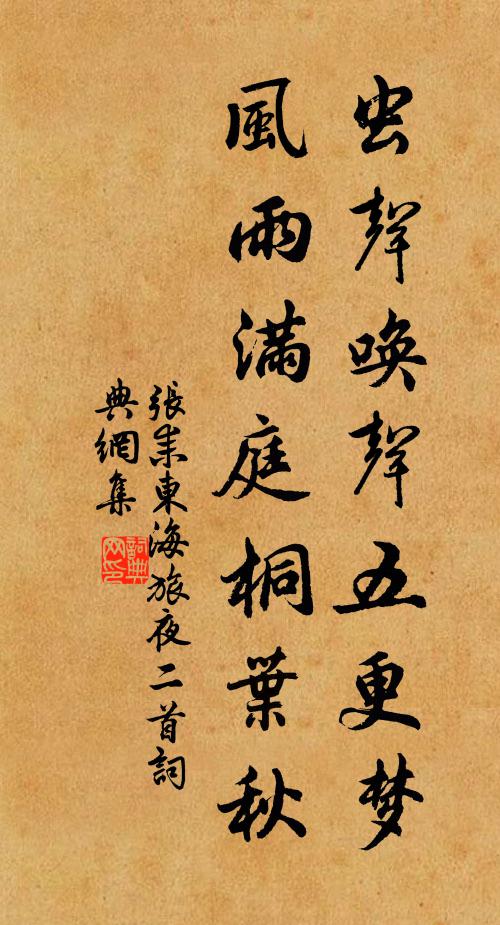 虫聲喚聲五更梦
風雨滿庭桐葉秋
張耒東海旅夜二首詞
典網集
詞典
网印